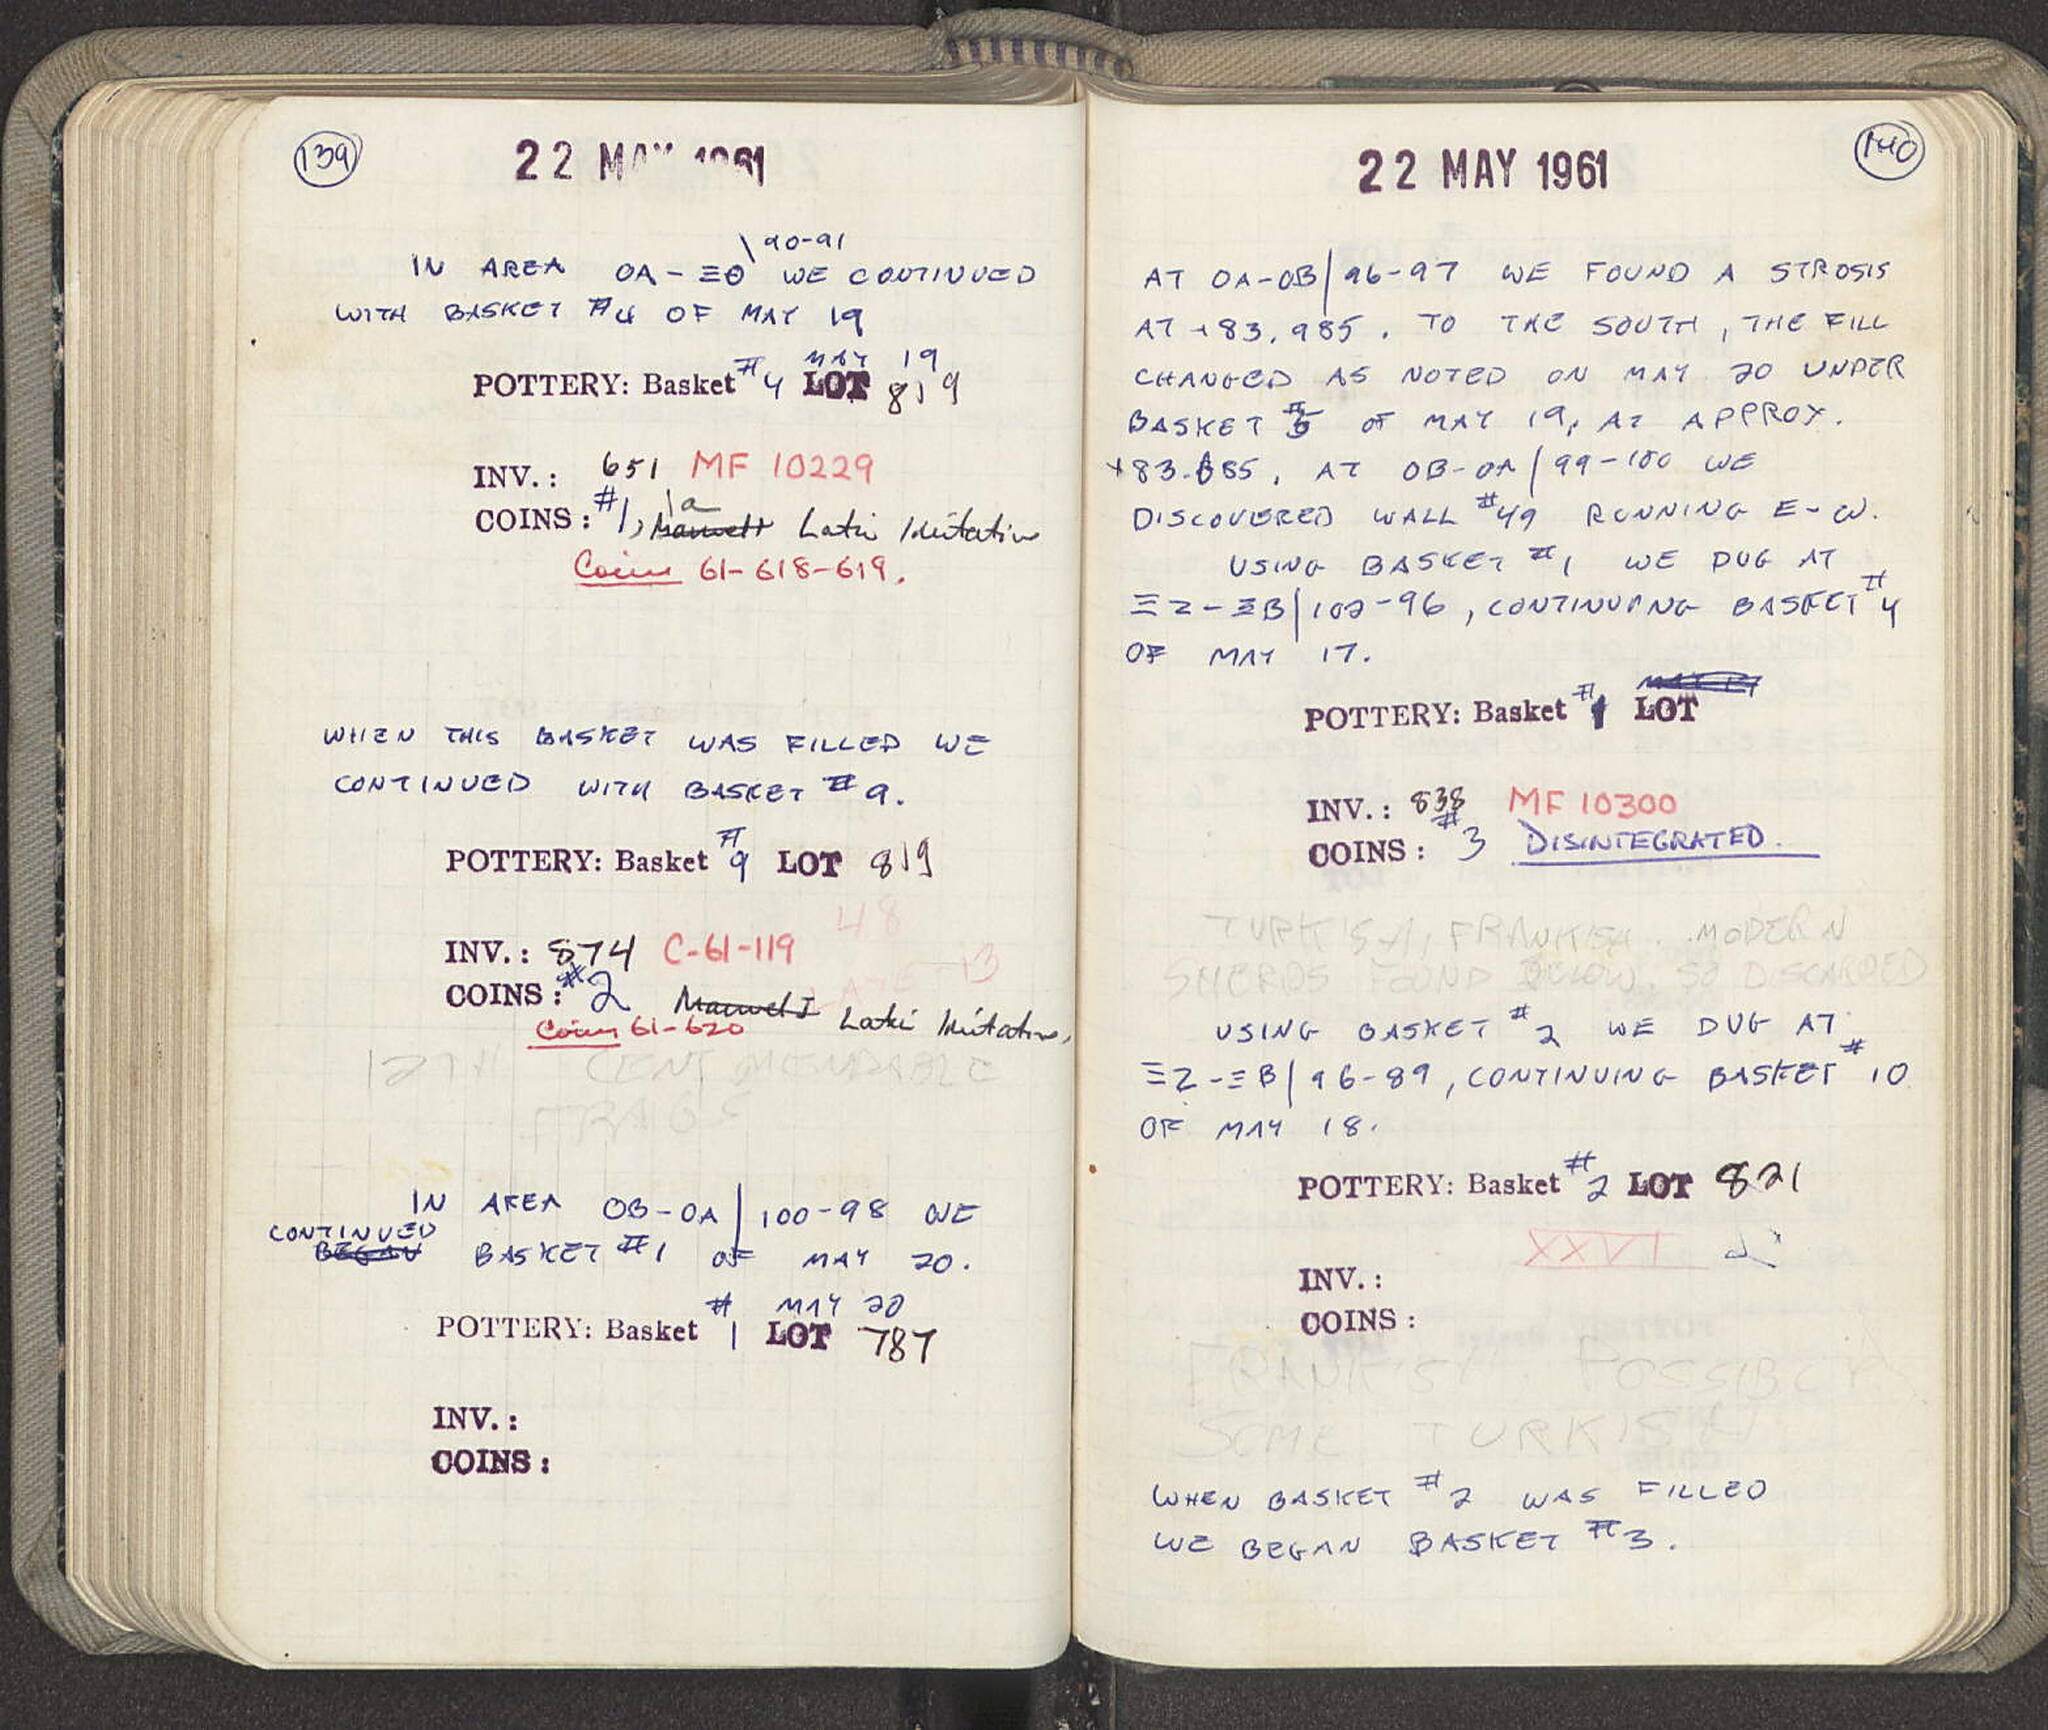 139
22 MAY 1961
\ 90-91
IN AREA OA-ΞΘ WE CONTINUED
WITH BASKET #4 OF MAY 19
MAY 19
POTTERY: Basket #4 LOT 819
INV.: 651 MF 10229
COINS: #1, 1a Latin Imitative
Coins 61-618-619.
WHEN THIS BASKET WAS FILLED WE
CONTINUED WITH BASKET #9.
POTTERY: Basket #9 LOT 819
48
INV.: 874 C-61-119
COINS: #2 Manuel I Latin Imitative,
Coins 61-620
12TH CENT MENDABLE
FRAGS
IN AREA OB-OA/100-98 WE
CONTINUED
BEGAN BASKET #1 OF MAY 20.
MAY 20
POTTERY: Basket #1 LOT 787
INV.:
COINS:
140
22 MAY 1961
AT OA-OB/96-97 WE FOUND A STROSIS
AT +83.985. TO THE SOUTH, THE FILL
CHANGED AS NOTED ON MAY 20 UNDER
BASKET # OF MAY 19, AT APPROX.
AT OB-OA/99-100 WE
DISCOVERED WALL #49 RUNNING E-W.
USING BASKET #1 WE DUG AT
ΞZ-ΞB/102-96, CONTINUING BASKET #4
OF MAY 17.
POTTERY: Basket #1 LOT
INV.: 838 MF 10300
COINS: #3 DISINTEGRATED.
TURKISH, FRANKISH. MODERN
SHERDS FOUND BELOW, SO DISCARDED
USING BASKET #2 WE DUG AT
ΞZ-ΞB/96-89, CONTINUING BASKET #10
OF MAY 18.
POTTERY: Basket #2 LOT 821
XXVI
INV.:
COINS:
FRANKISH. POSSIBLY
SOME TURKISH
WHEN BASKET #2 WAS FILLED
WE BEGAN BASKET #3.